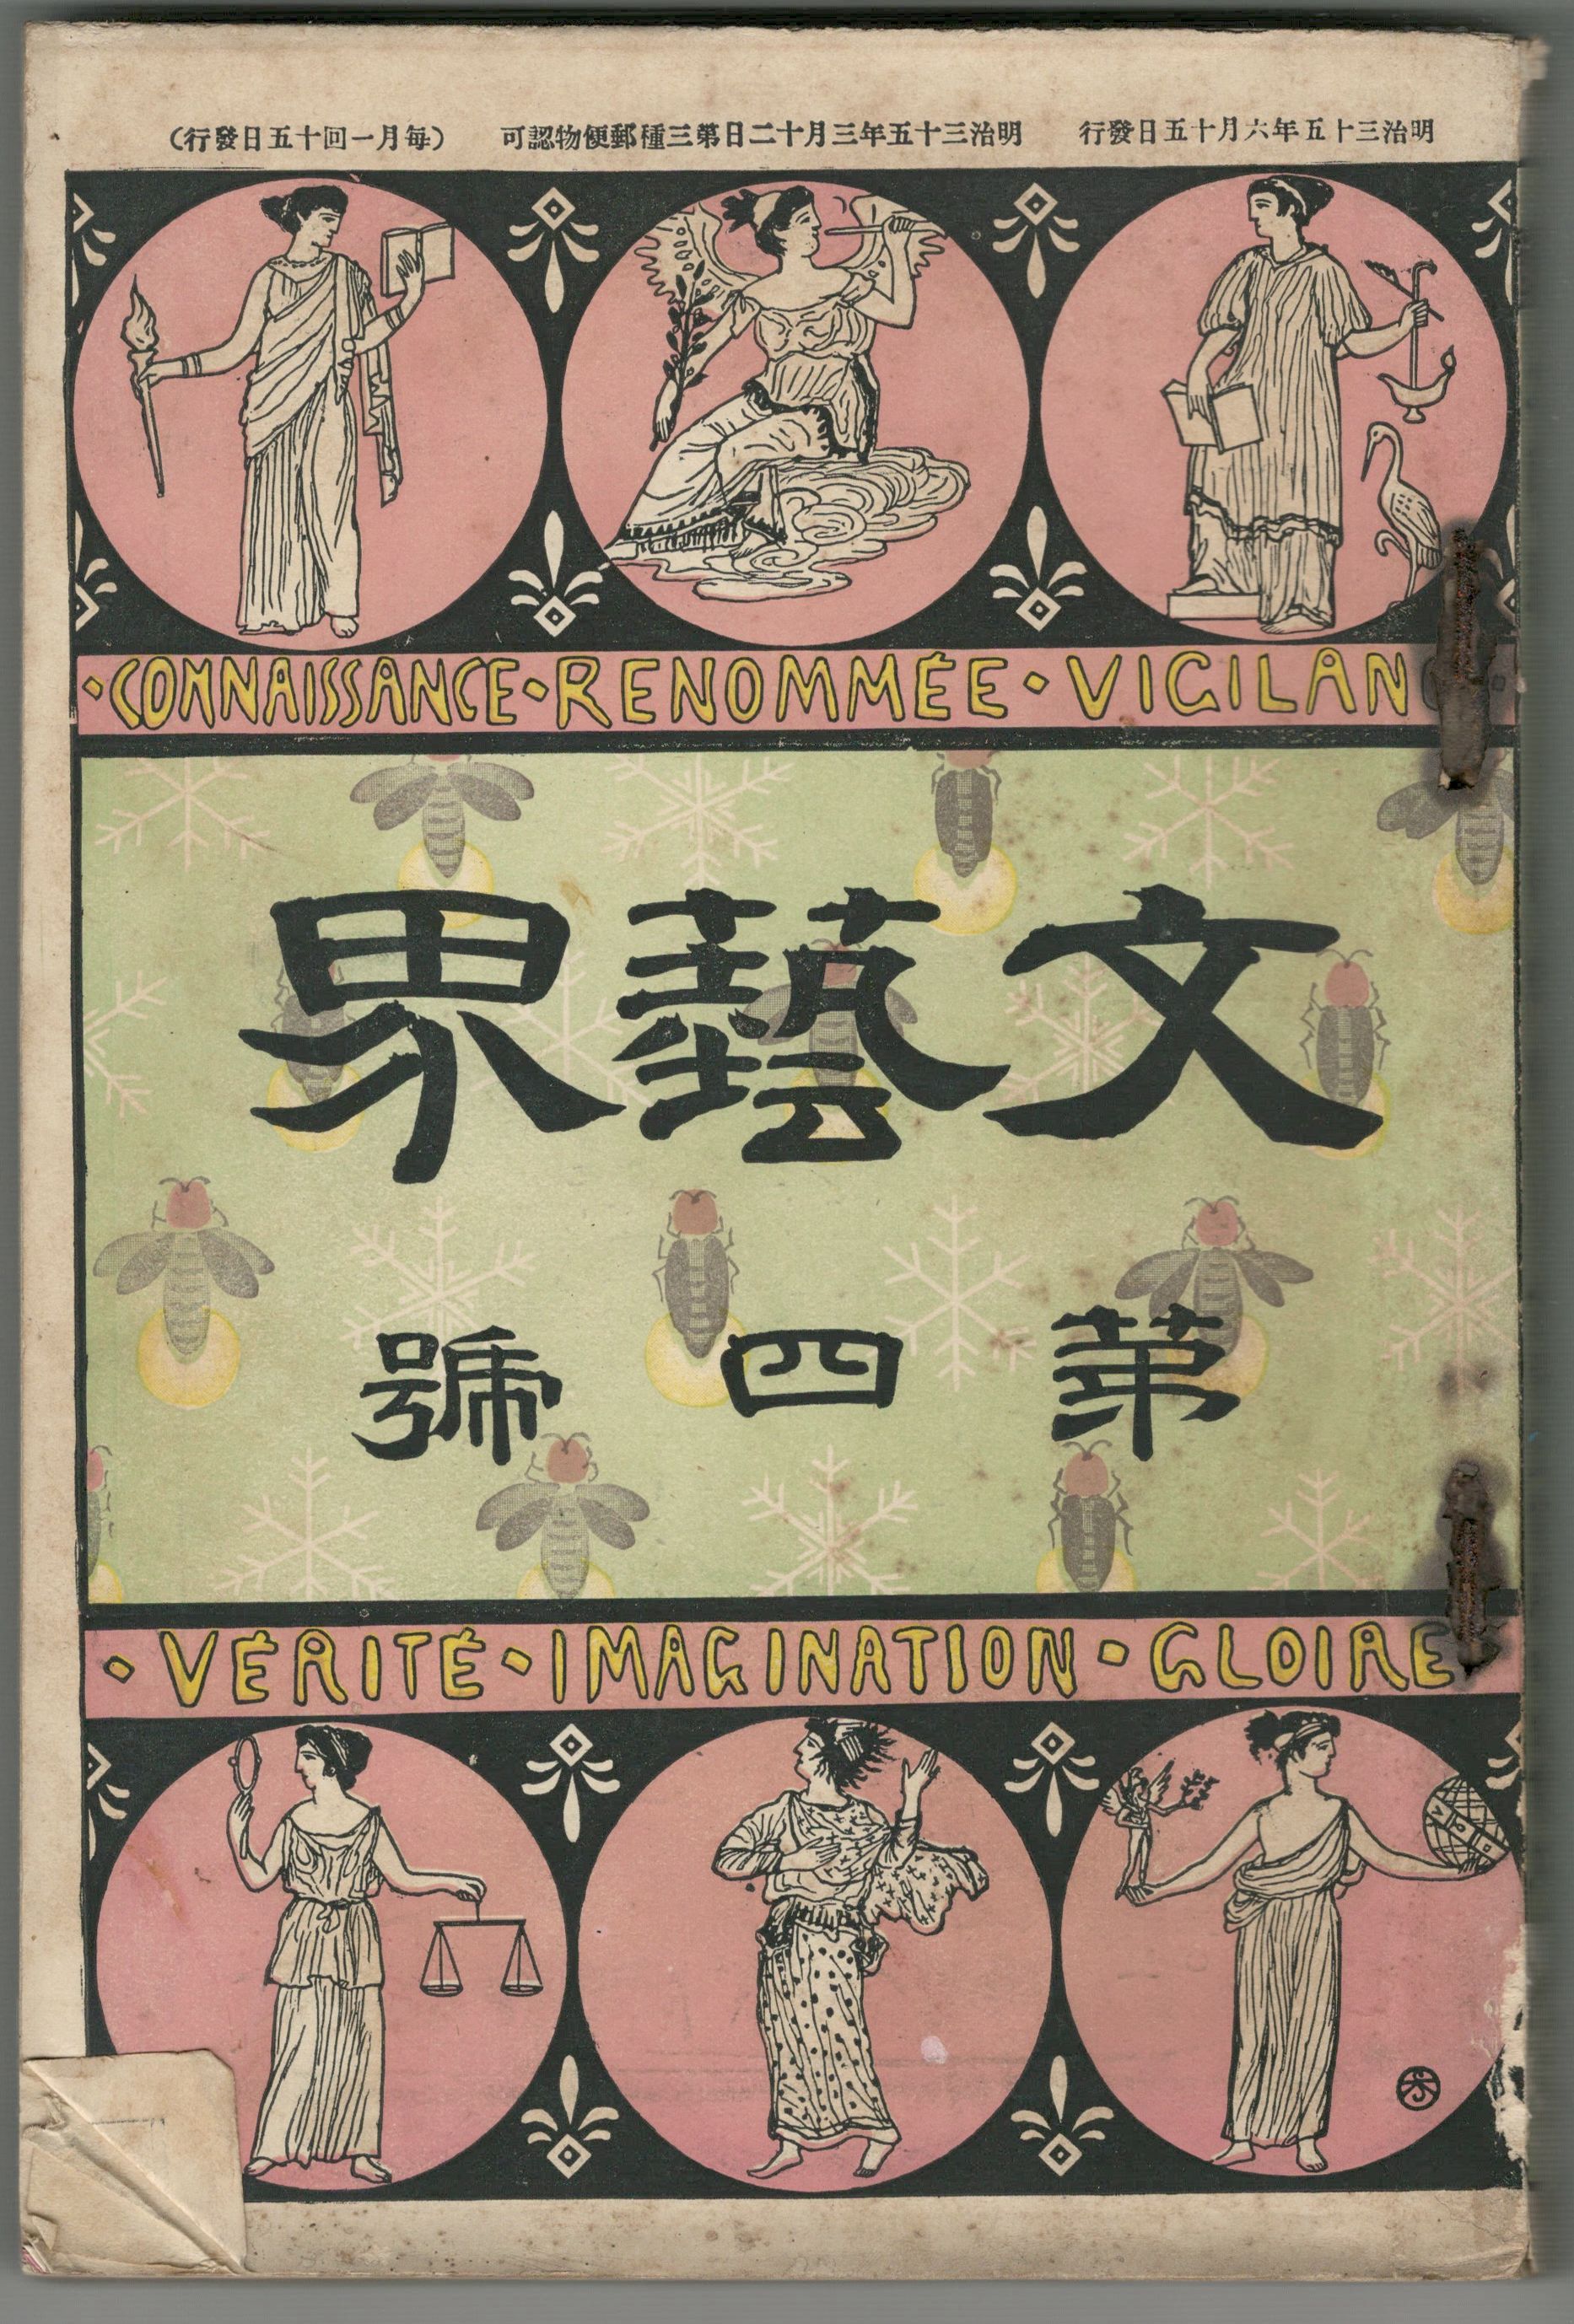 明治三十五年六月十五日發行　明治三十五年三月十二日第三種郵便物認可　（每月一回十五日發行）
·CONNAISSANCE·RENOMMÉE·VIGILANC
文藝界
第四號
·VÉRITÉ·IMAGINATION·GLOIRE